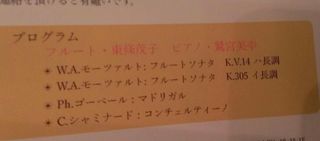 頂けると有難いです。
プログラム
フルート・東條茂子 ピアノ・鷲宮美幸
W.A.モーツァルト:フルートソナタ K.V.14 ハ長調
W.A.モーツァルト:フルートソナタ K.305 イ長調
Ph.ゴーベール:マドリガル
C.シャミナード:コンチェルティーノ